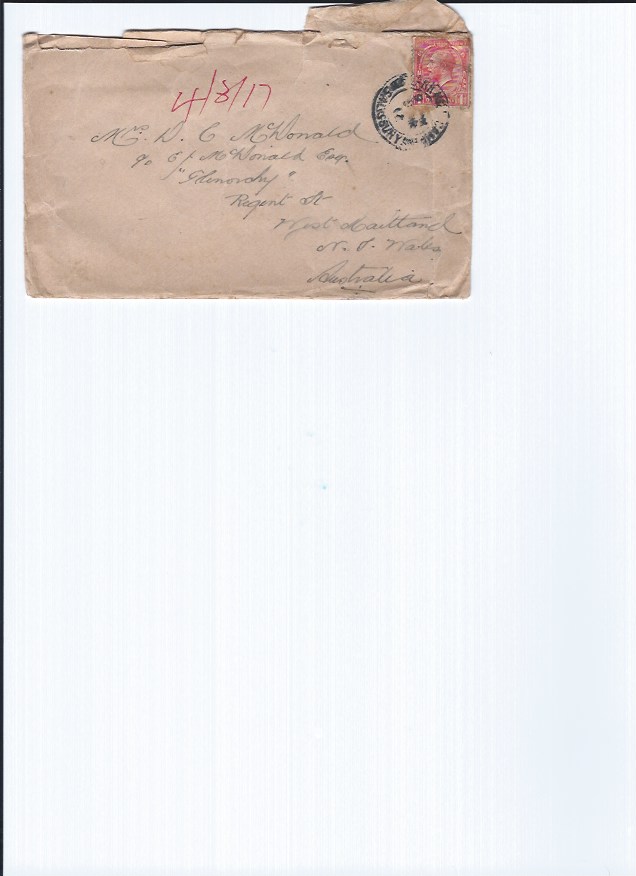 4/3/17
Mrs. D. C McDonald
c/o E J McDonald Esq.
"Glenorchy"
Regent St
West Maitland
N. S. Wales
Australia